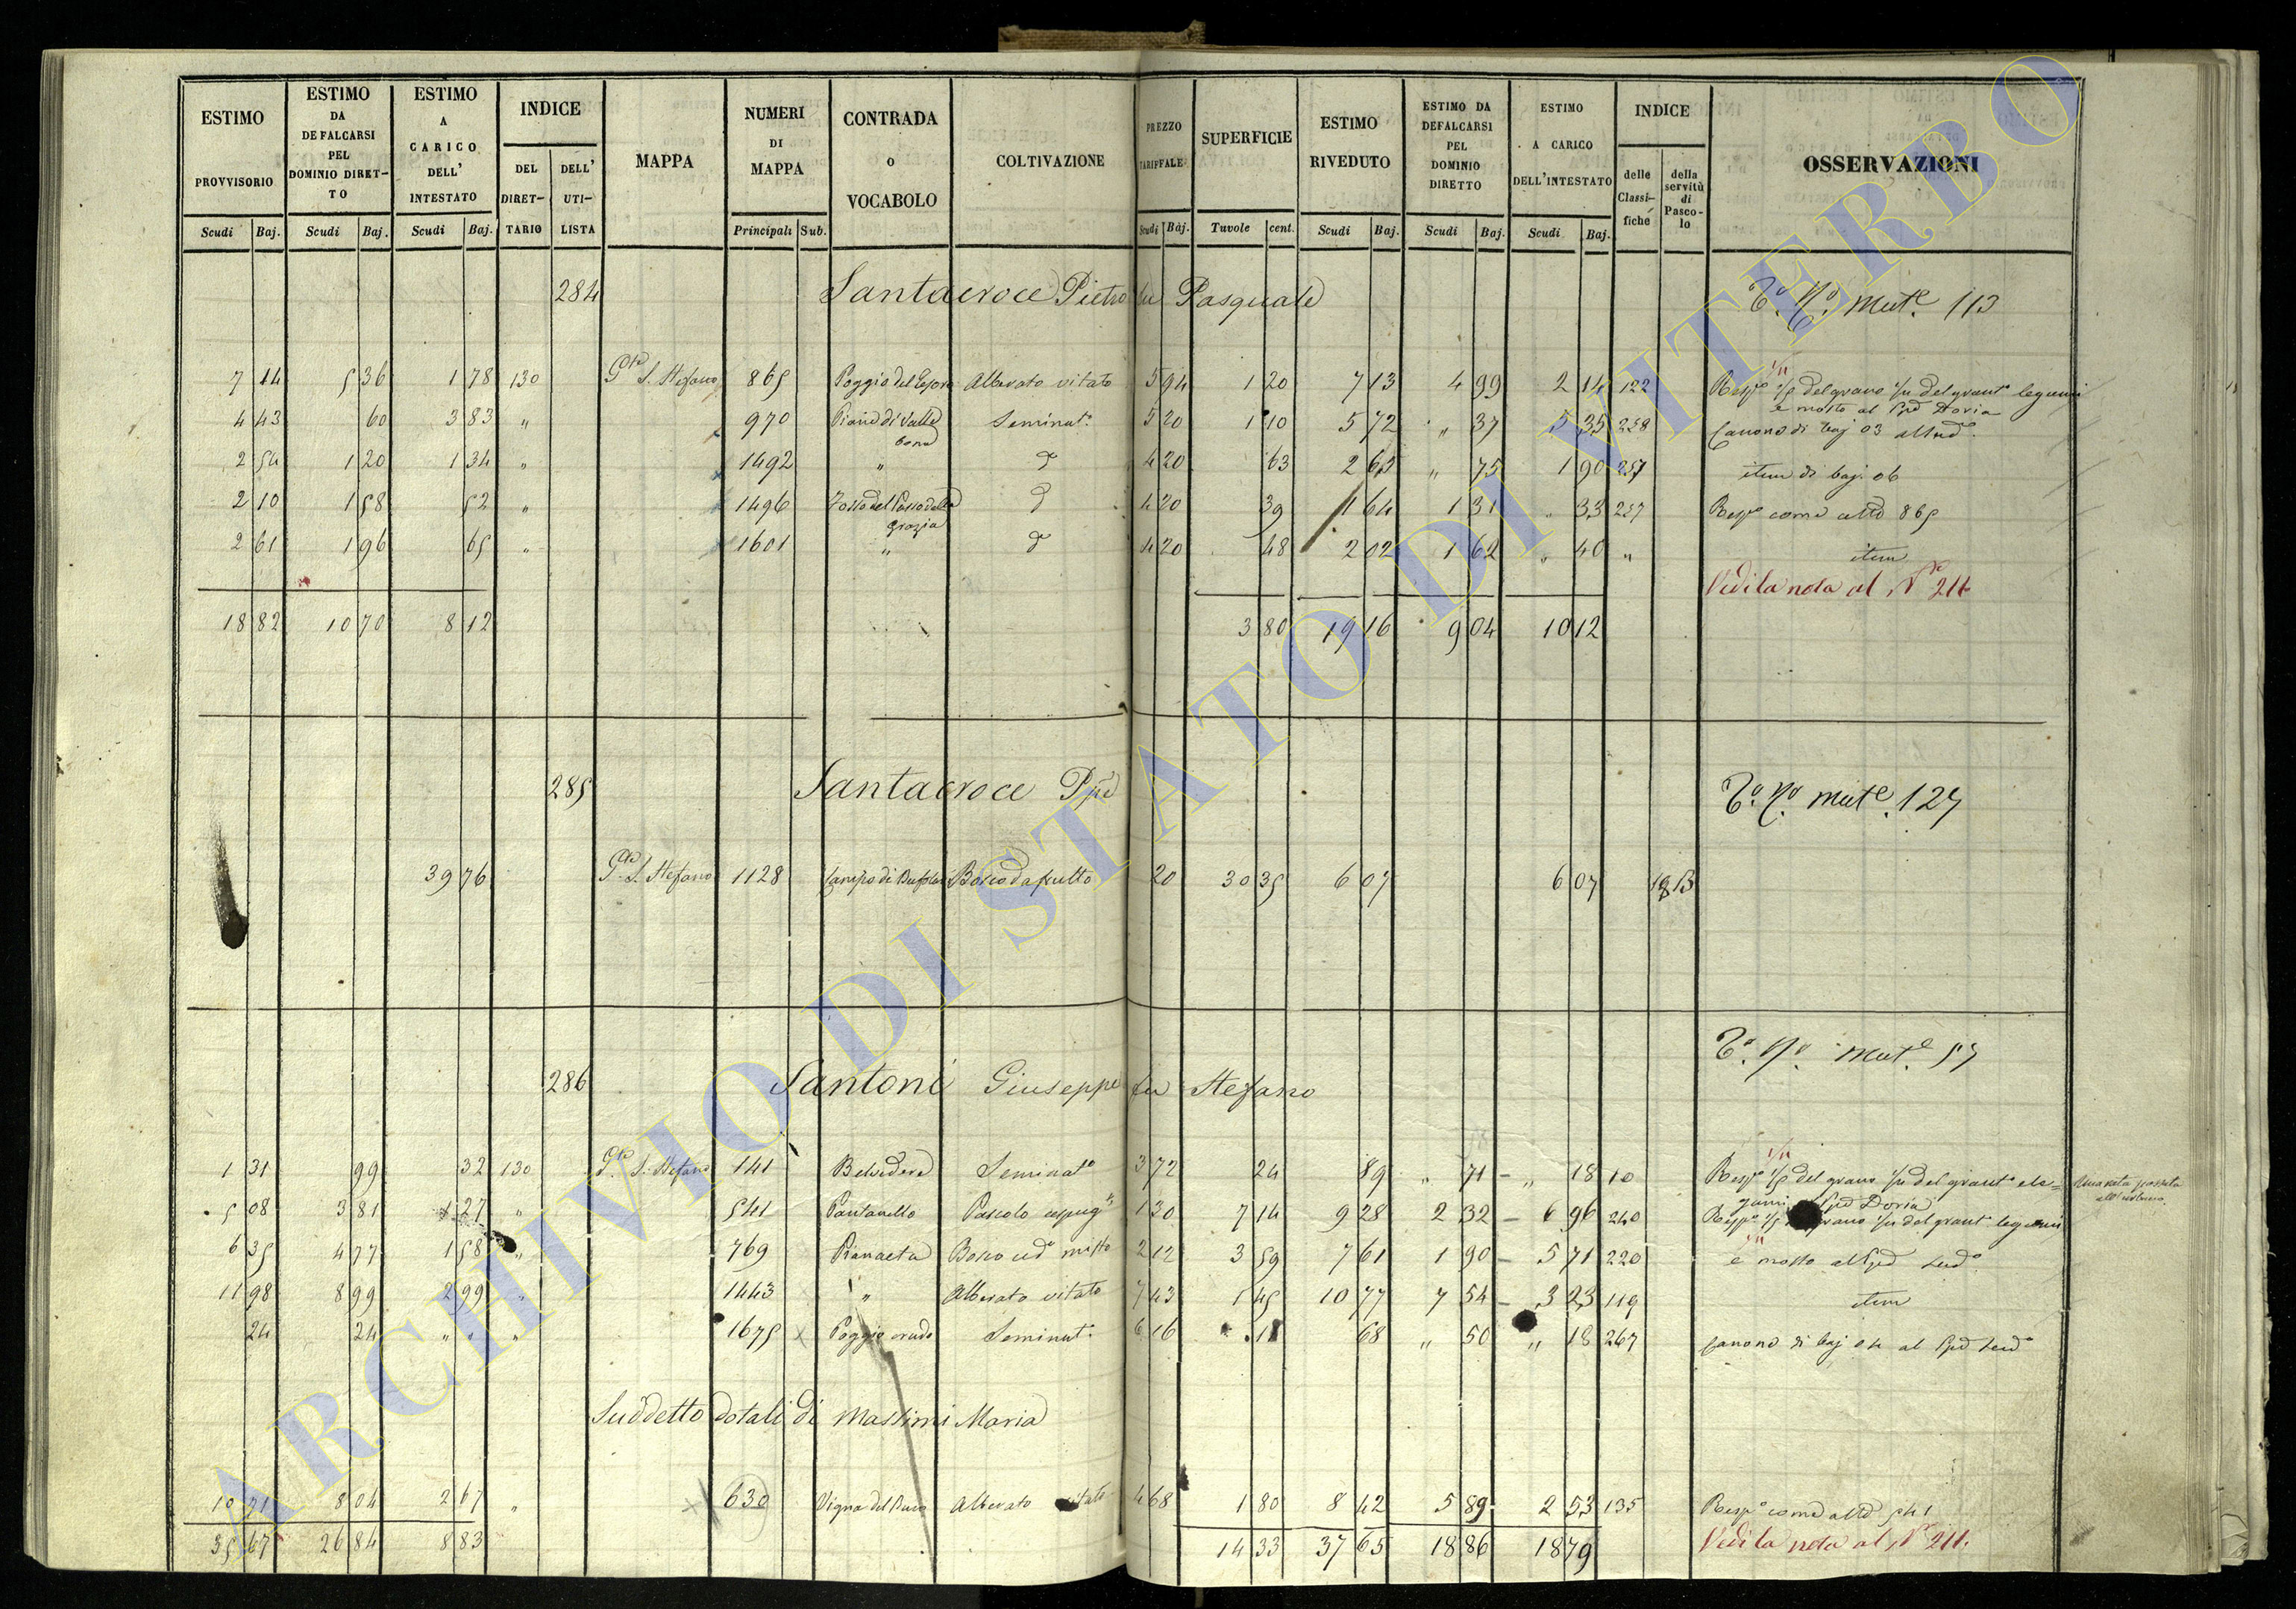 ESTIMO PROVVISORIO Scudi Baj.
ESTIMO DA DEFALCARSI PEL DOMINIO DIRETTO Scudi Baj.
ESTIMO A CARICO DELL' INTESTATO Scudi Baj.
INDICE DEL DIRETTARIO DELL' UTILISTA
MAPPA
NUMERI DI MAPPA Principali Sub.
CONTRADA o VOCABOLO
COLTIVAZIONE
PREZZO TARIFFALE Scudi Baj.
SUPERFICIE Tavole cent.
ESTIMO RIVEDUTO Scudi Baj.
ESTIMO DA DEFALCARSI PEL DOMINIO DIRETTO Scudi Baj.
ESTIMO A CARICO DELL'INTESTATO Scudi Baj.
INDICE delle Classifiche della servitù di Pascolo
OSSERVAZIONI
284 Santacroce Pietro fu Pasquale Mut.e 113
7 14 5 36 1 78 130 S. Stefano 865 Alberato vitato 5 94 1 20 7 13 4 99 2 14 122 del grano
e mosto al Doria
4 43 60 3 83 " 970 Piano di Valle bona Seminat.o 5 20 1 10 5 72 " 37 5 35 258 Canone di baj 03
2 54 1 20 1 34 " 1492 " 4 20 63 2 65 " 75 1 90 257 item di baj. 06
2 10 1 58 52 " 1496 4 20 39 1 64 1 31 " 33 257 Resp.o come 865
2 61 1 96 65 " 1601 " 4 20 48 2 02 1 62 " 40 " item
Vedi la nota al N.o 211
18 82 10 70 8 12 3 80 19 16 9 04 10 12
285 Santacroce Mut.e 127
39 76 S. Stefano 1128 Bosco da frutto 20 30 35 6 07 6 07
Mut.e 57
286 Santoni Giuseppe fu Stefano
1 31 99 32 130 S. Stefano 141 Belvedere Seminat.o 3 72 24 89 " 71 " 18 10 Resp.e 1/5 del grano
5 08 3 81 1 27 " 541 Pantanello Pascolo 1 30 7 14 9 28 2 32 6 96 240 Doria
6 35 4 77 1 58 " 769 Pianaeta Bosco misto 2 12 3 59 7 61 1 90 5 71 220 e mosto
11 98 8 99 2 99 " 1443 " Alberato vitato 7 43 1 45 10 77 7 54 3 23 119 item
24 24 " " " 1675 Seminat.o 6 16 11 68 " 50 " 18 267 Canone di baj
Suddetto dotali di Massimi Maria
10 71 8 04 2 67 " 630 Vigna del Alberato vitato 4 68 1 80 8 42 5 89 2 53 135 Resp.o come 541
35 67 26 84 8 83 14 33 37 65 18 86 18 79 Vedi la nota al N.o 211.
ARCHIVIO DI STATO DI VITERBO